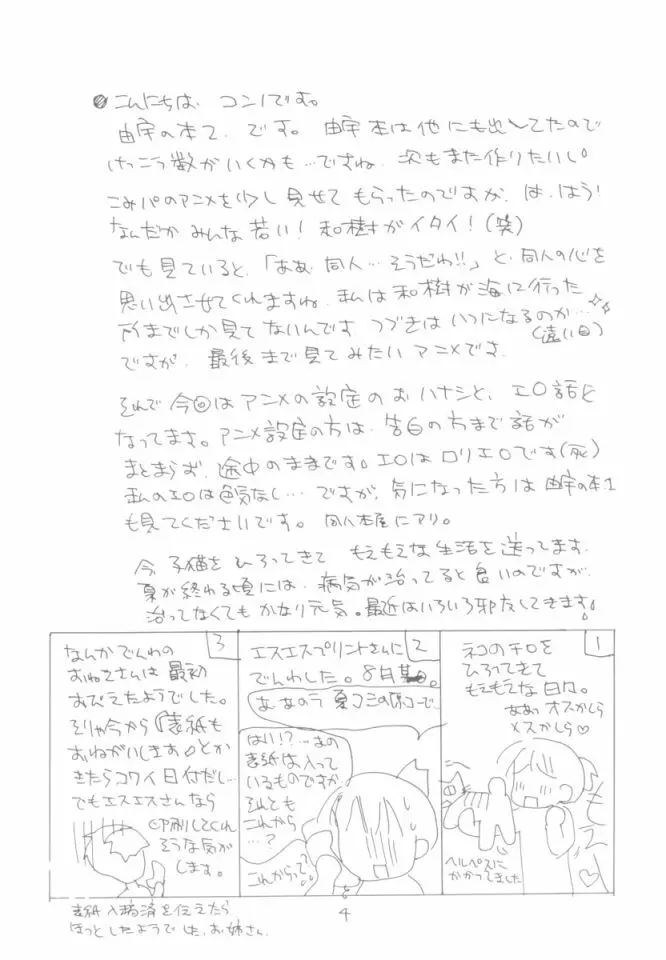 こんにちは、コンノです。
由宇の本2、です。由宇本は他にも出してたので
けっこう数がいくかも…ですね、次もまた作りたいし。
こみパのアニメを少し見せてもらったのですが、は、はう!
なんだかみんな若い!和樹がイタイ!(笑)
でも見ていると、「ああ、同人…そうだわ!!」と、同人の心を
思い出させてくれますね、私は和樹が海に行った
所までしか見てないんです つづきはいつになるのか…
(遠い目)
ですが、最後まで見てみたいアニメです。
それで今回はアニメの設定のおハナシと、エロ話と
なってます。アニメ設定の方は、告白の方まで話が
まとまらず、途中のままです。エロはロリエロです(死)
私のエロは色気なし…ですが、気になった方は由宇の本1
も見てくださいです。同人本屋にアリ。
今、子猫をひろってきて もえもえな生活を送ってます、
夏が終わる頃には、病気が治ってると良いのですが、
治ってなくてもかなり元気。最近はいろいろ邪友してきます!
1
ネコのチロを
ひろってきて
もえもえな日々。
ああっオスかしら
メスかしら♡
もえ
ヘルペスに
かかってました
2
エスエスプリントさんに
でんわした。8月某日。
あ、あのう 夏コミの原コーで、
はい!?…あの
表紙は入って
いるものですが
それとも
これから
…?
これからって?
3
なんかでんわの
おねえさんは最初
おびえたようでした。
そりゃ今から『表紙も
おねがいします』とか
きたらコワイ日付だし…
でもエスエスさんなら
印刷してくれ
そうな気が
します。
表紙入稿済を伝えたら
ほっとしたようでした、お姉さん。
4